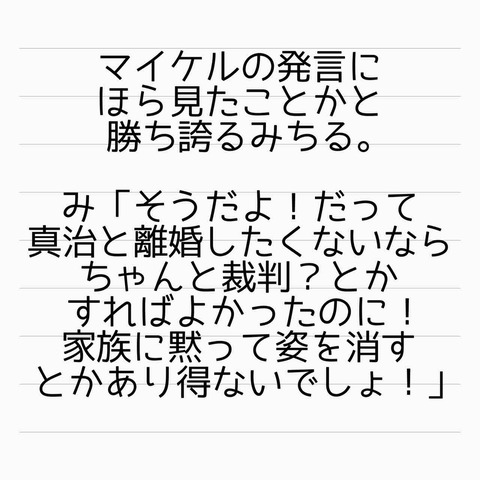 マイケルの発言に
ほら見たことかと
勝ち誇るみちる。
み「そうだよ！だって
真治と離婚したくないなら
ちゃんと裁判？とか
すればよかったのに！
家族に黙って姿を消す
とかあり得ないでしょ！」